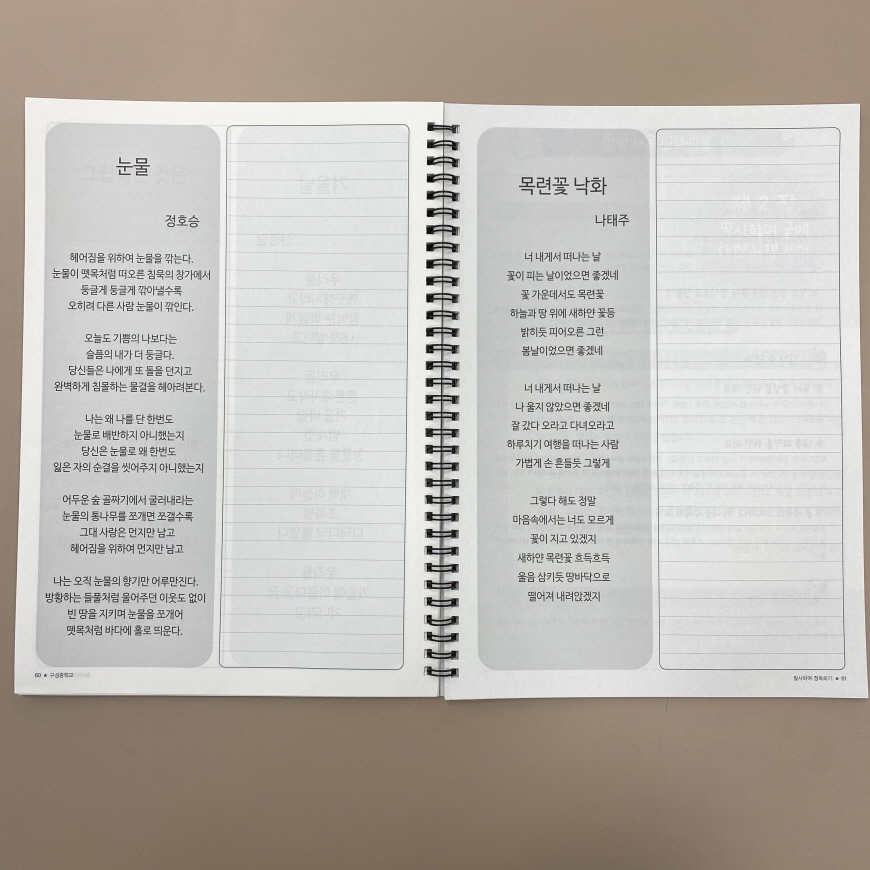 눈물
정호승
헤어짐을 위하여 눈물을 깎는다.
눈물이 뗏목처럼 떠오른 침묵의 창가에서
둥글게 둥글게 깎아낼수록
오히려 다른 사람 눈물이 깎인다.
오늘도 기쁨의 나보다는
슬픔의 내가 더 둥글다.
당신들은 나에게 또 돌을 던지고
완벽하게 침몰하는 물결을 헤아려본다.
나는 왜 나를 단 한번도
눈물로 배반하지 아니했는지
당신은 눈물로 왜 한번도
잃은 자의 순결을 씻어주지 아니했는지
어두운 숲 골짜기에서 굴러내리는
눈물의 통나무를 쪼개면 쪼갤수록
그대 사랑은 먼지만 남고
헤어짐을 위하여 먼지만 남고
나는 오직 눈물의 향기만 어루만진다.
방황하는 들풀처럼 울어주던 이웃도 없이
빈 땅을 지키며 눈물을 쪼개어
뗏목처럼 바다에 홀로 띄운다.
60 ★ 구성중학교
목련꽃 낙화
나태주
너 내게서 떠나는 날
꽃이 피는 날이었으면 좋겠네
꽃 가운데서도 목련꽃
하늘과 땅 위에 새하얀 꽃등
밝히듯 피어오른 그런
봄날이었으면 좋겠네
너 내게서 떠나는 날
나 울지 않았으면 좋겠네
잘 갔다 오라고 다녀오라고
하루치기 여행을 떠나는 사람
가볍게 손 흔들듯 그렇게
그렇다 해도 정말
마음속에서는 너도 모르게
꽃이 지고 있겠지
새하얀 목련꽃 흐득흐득
울음 삼키듯 땅바닥으로
떨어져 내려앉겠지
필사하며 정독하기 ★ 61